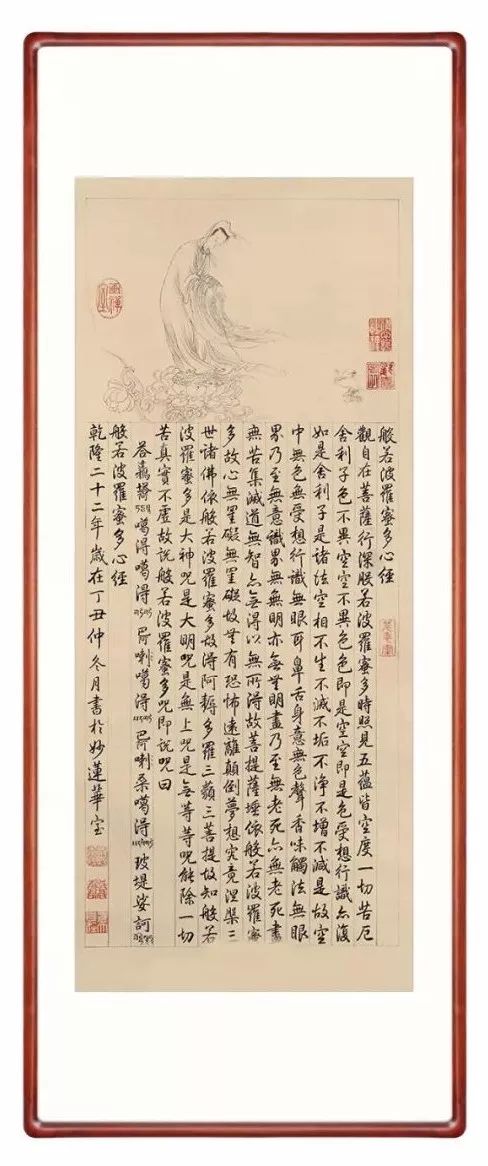 般若波羅蜜多心經
觀自在菩薩行深般若波羅蜜多時照見五蘊皆空度一切苦厄
舍利子色不異空空不異色色即是空空即是色受想行識亦復
如是舍利子是諸法空相不生不滅不垢不淨不增不減是故空
中無色無受想行識無眼耳鼻舌身意無色聲香味觸法無眼
界乃至無意識界無無明亦無無明盡乃至無老死亦無老死盡
無苦集滅道無智亦無得以無所得故菩提薩埵依般若波羅蜜
多故心無罣礙無罣礙故無有恐怖遠離顛倒夢想究竟涅槃三
世諸佛依般若波羅蜜多故得阿耨多羅三藐三菩提故知般若
波羅蜜多是大神咒是大明咒是無上咒是無等等咒能除一切
苦真實不虛故說般若波羅蜜多咒即說咒曰
噶得噶得 喇噶得 喇桑噶得 堤娑訶
般若波羅蜜多心經
乾隆二十二年歲在丁丑仲冬月書於妙蓮華室